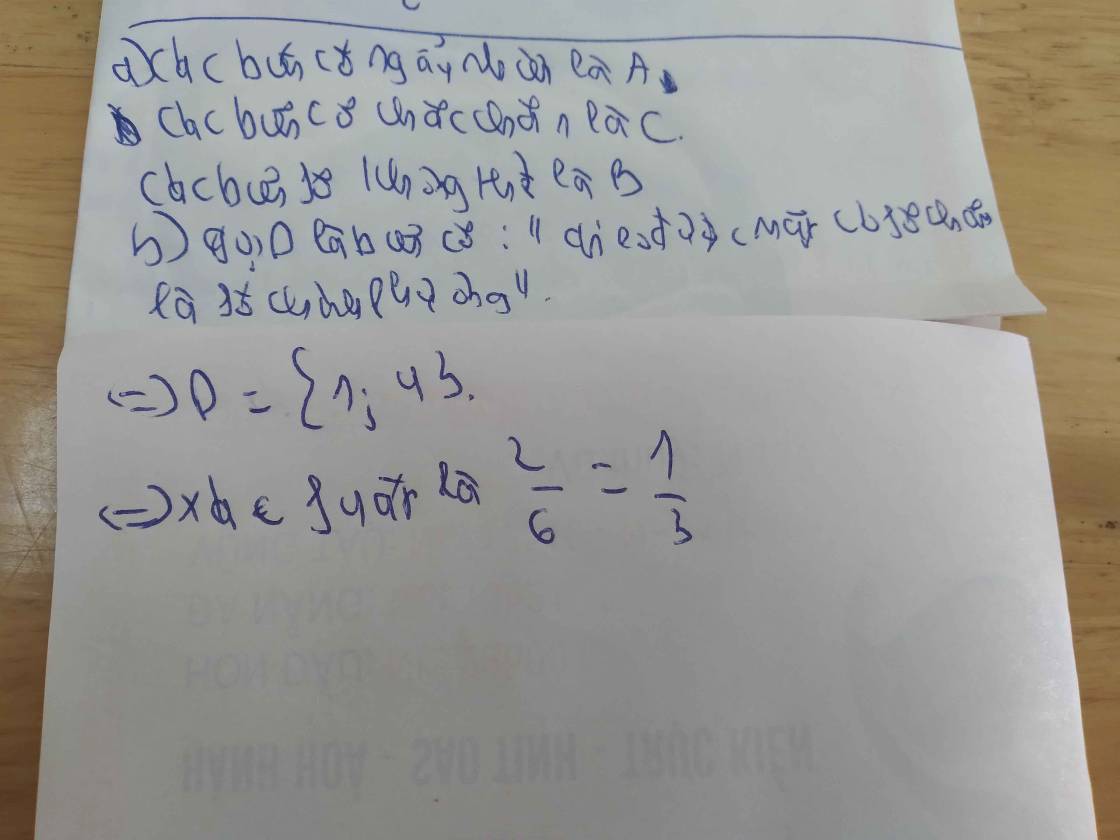 a) Các biến cố ngẫu nhiên là A.
Các biến cố chắc chắn là C.
Các biến số không thể là B
b) gọi D là biến cố : " gieo được mặt có số chấm
là số chính phương".
<=> D = {1; 4}.
<=> xác suất là 2/6 = 1/3
ĐÀ NẴNG
HÒN DẤU